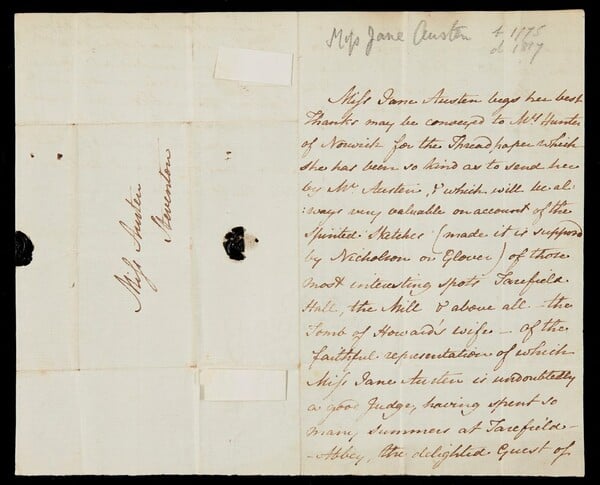 Miss Jane Austen b 1775
d. 1817
Miss Austen
Steventon
Miss Jane Austen begs her best
Thanks may be conveyed to Mrs Hunter
of Norwich for the Threadpaper which
she has been so kind as to send her
by Mr Austen, & which will be al-
:ways very valuable on account of the
spirited Sketches (made it is supposed
by Nicholson or Glover) of those
most interesting spots Tarefield
Hall, the Mill & above all the
Tomb of Howard's wife - of the
faithful representation of which
Miss Jane Austen is undoubtedly
a good Judge, having spent so
many summers at Tarefield-
-Abbey, the delighted Guest of